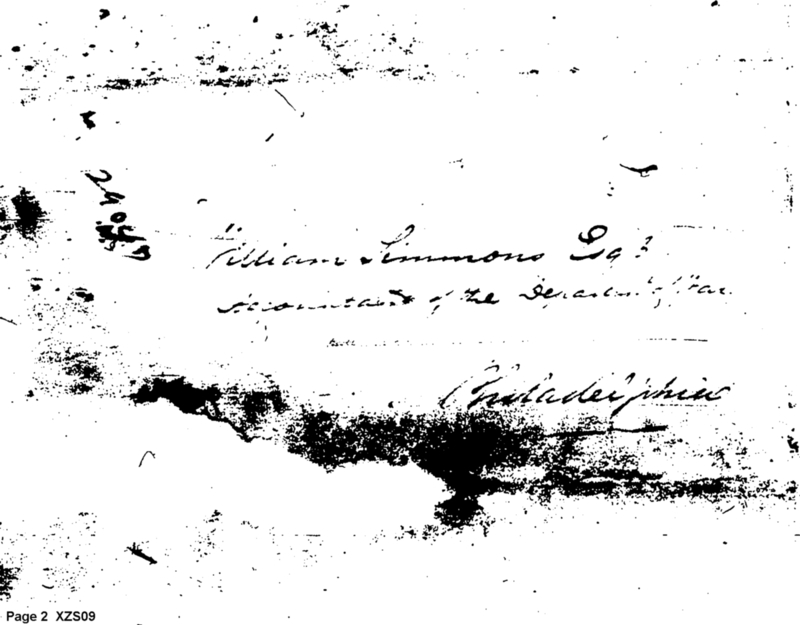 William Simmons Esqr
Accountant of the Department of War
Philadelphia
Page 2 XZS09